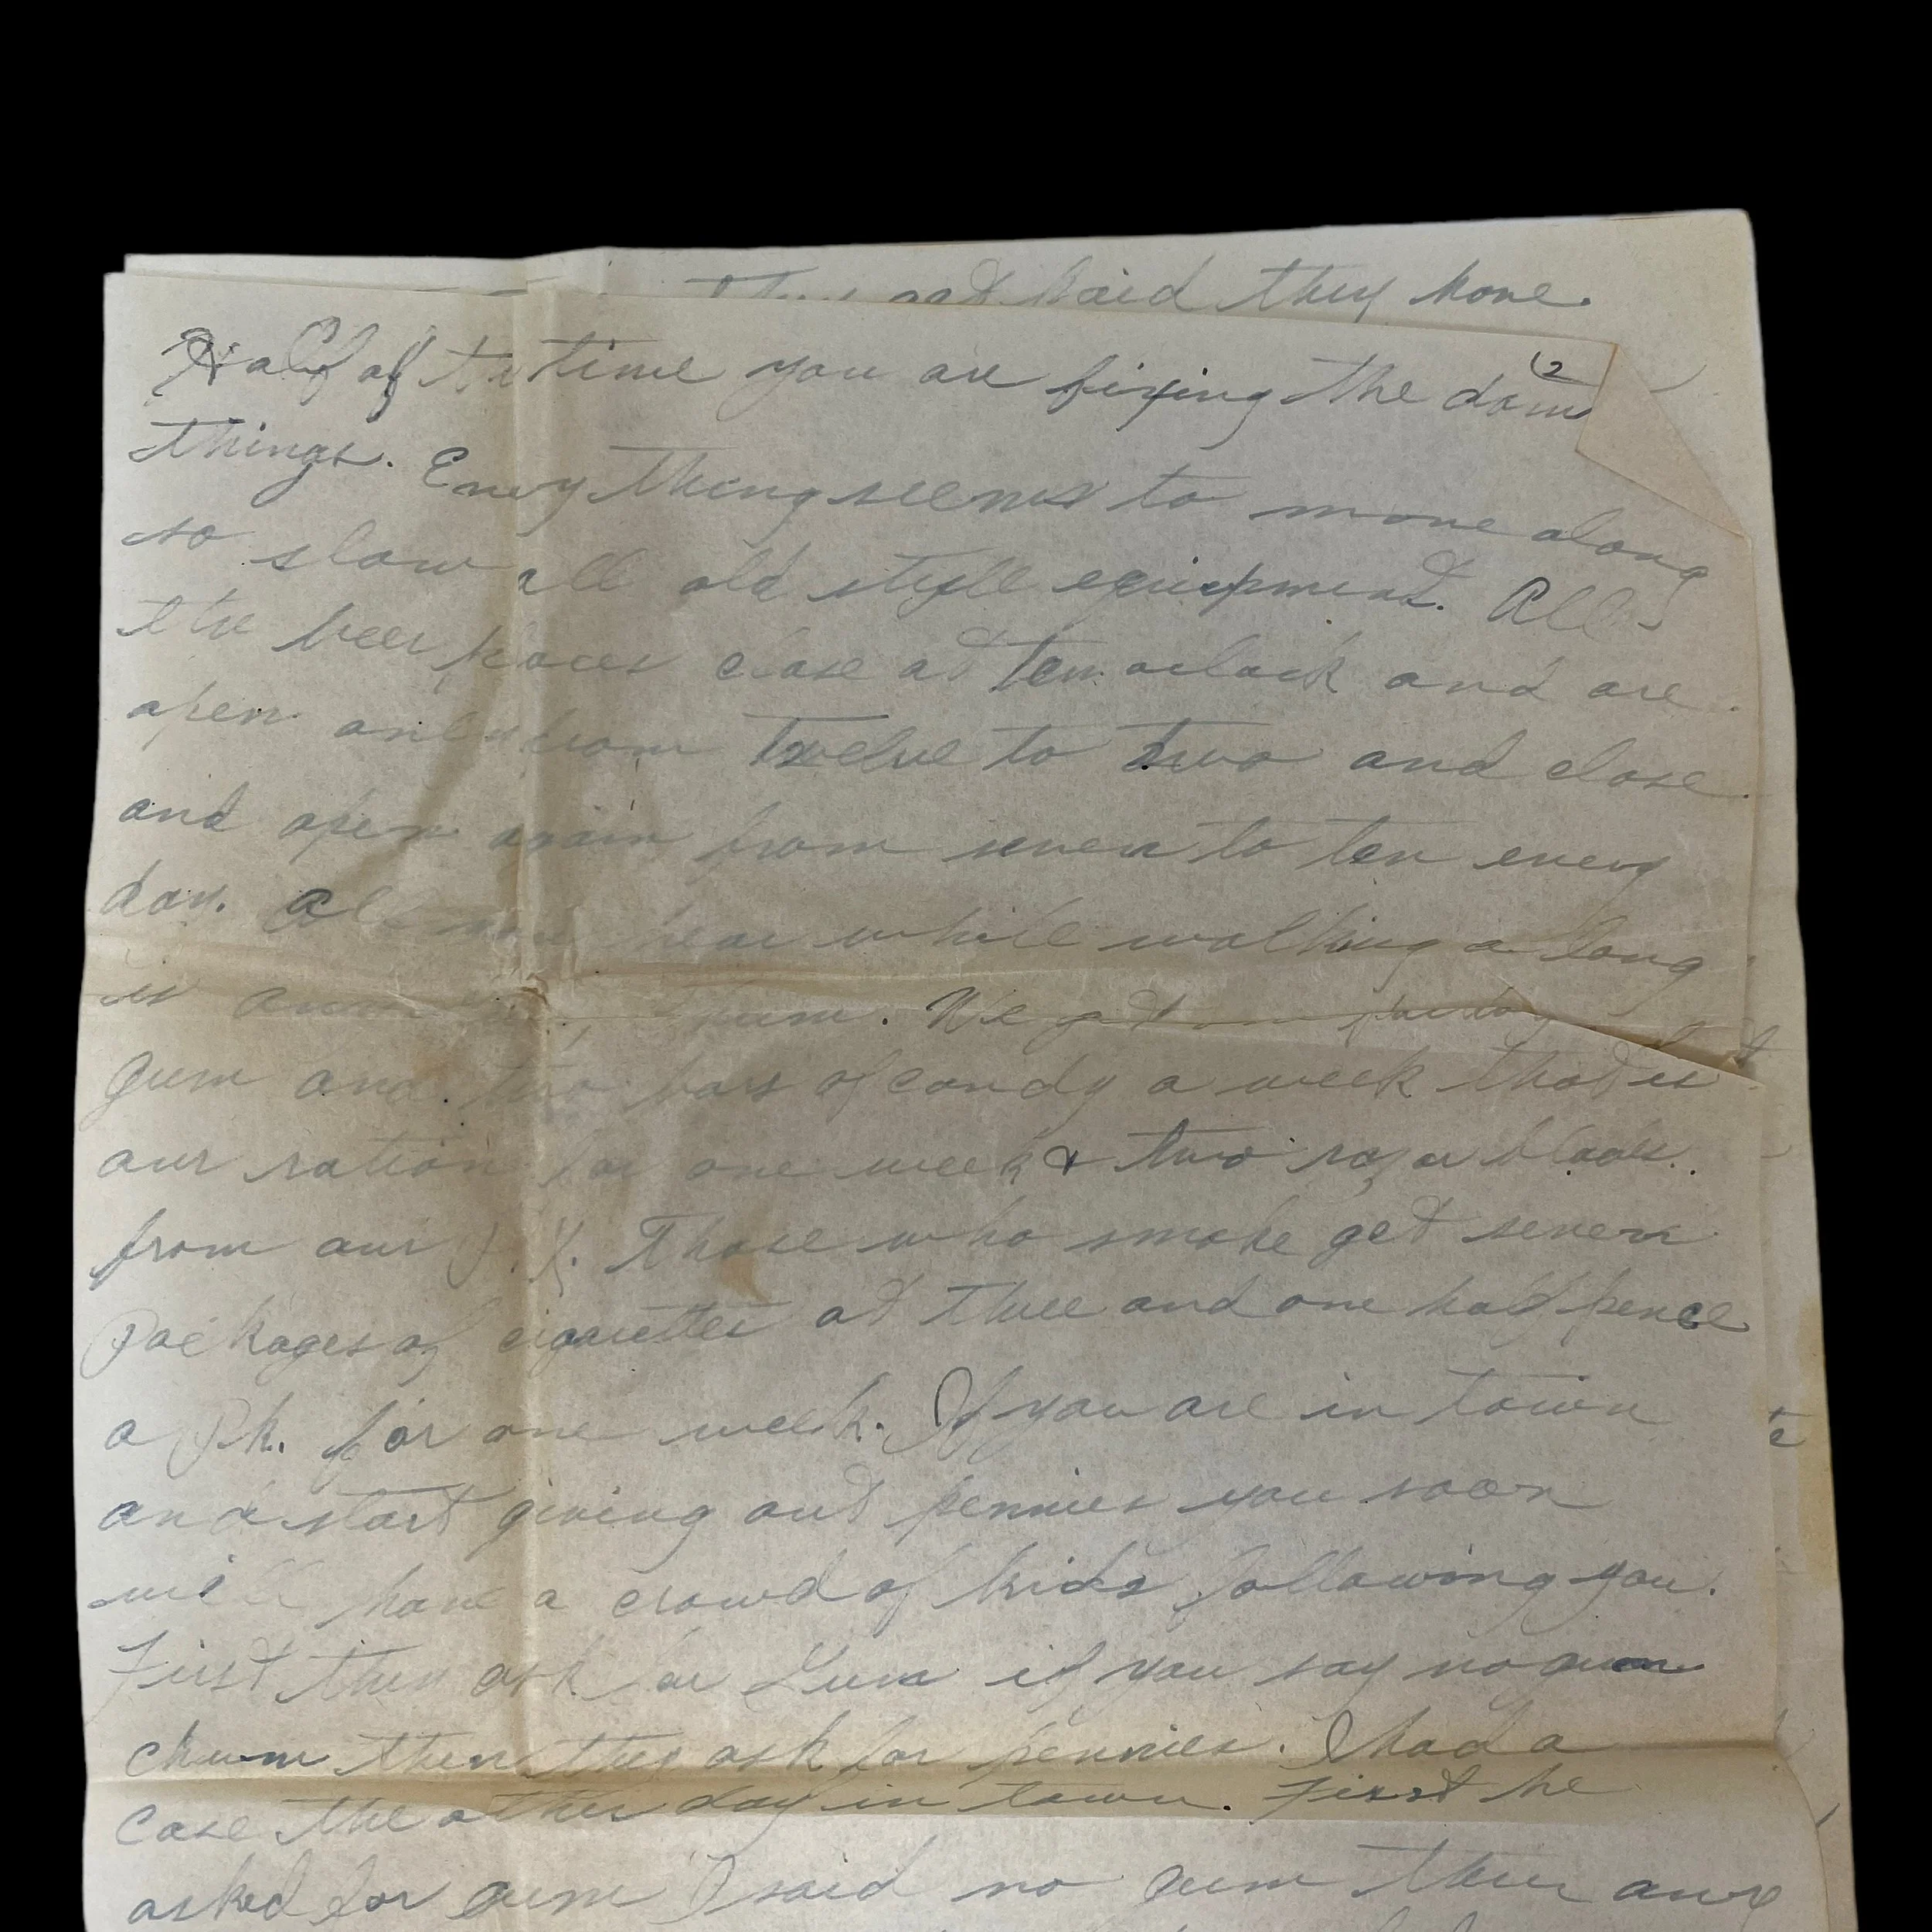 they have.
(2
Half of the time you are fixing the dam
things. Every thing seems to move along
so slow all old style equipment. All
the beer places close at ten oclock and are
open only from twelve to two and close
and open again from seven to ten every
day. All you hear while walking a long
is any gum, chum. We get one
gum and two bars of candy a week that is
our ration for one week & two razor blades.
from our P.X. Those who smoke get seven
Packages of cigarettes at three and one half pence
a Pk. for one week. If you are in town
and start giving out pennies you soon
will have a crowd of kids following you.
First they ask for Gum if you say no gum
chum then they ask for pennies. I had a
case the other day in town. First he
asked for gum I said no gum then any